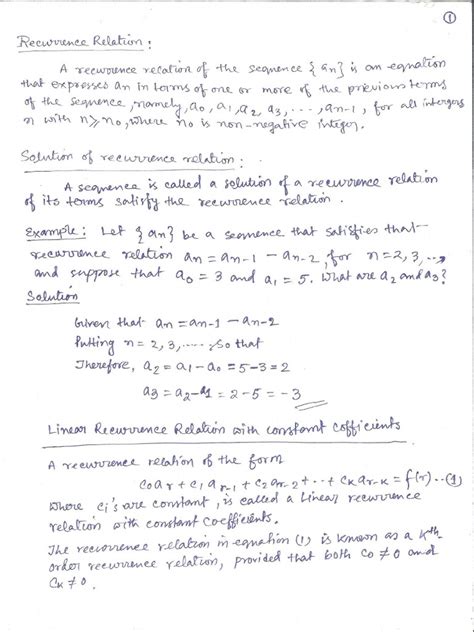 ①
Recurrence Relation :
A recurrence recation of the sequence { an } is an equation
that expresses an in terms of one or more of the previous terms
of the sequence, namely, a₀, a₁, a₂, a₃, ..., an-1, for all intergers
n with n ≥ n₀, where n₀ is non-negative integer.
Solution of recurrence relation :
A sequence is called a solution of a recurrence relation
of its terms satisfy the recurrence relation.
Example: Let {an} be a sequence that satisfies that
recurrence relation an = an-1 - an-2, for n = 2, 3, ...,
and suppose that a₀ = 3 and a₁ = 5. What are a₂ and a₃?
Solution
Given that an = an-1 - an-2
Putting n = 2, 3, ..... , so that
Therefore, a₂ = a₁ - a₀ = 5 - 3 = 2
a₃ = a₂ - a₁ = 2 - 5 = -3
Linear Recurrence Relation with constant Cofficients
A recurrence relation of the form
C₀ar + C₁ ar-1 + C₂ ar-2 + ... + Ck ar-k = f(r) ...(1)
Where Ci's are constant, is called a Linear recurrence
relation with constant Coefficients.
The recurrence relation in equation (1) is known as a Kth
order recurrence relation, provided that both C₀ ≠ 0 and
Ck ≠ 0.